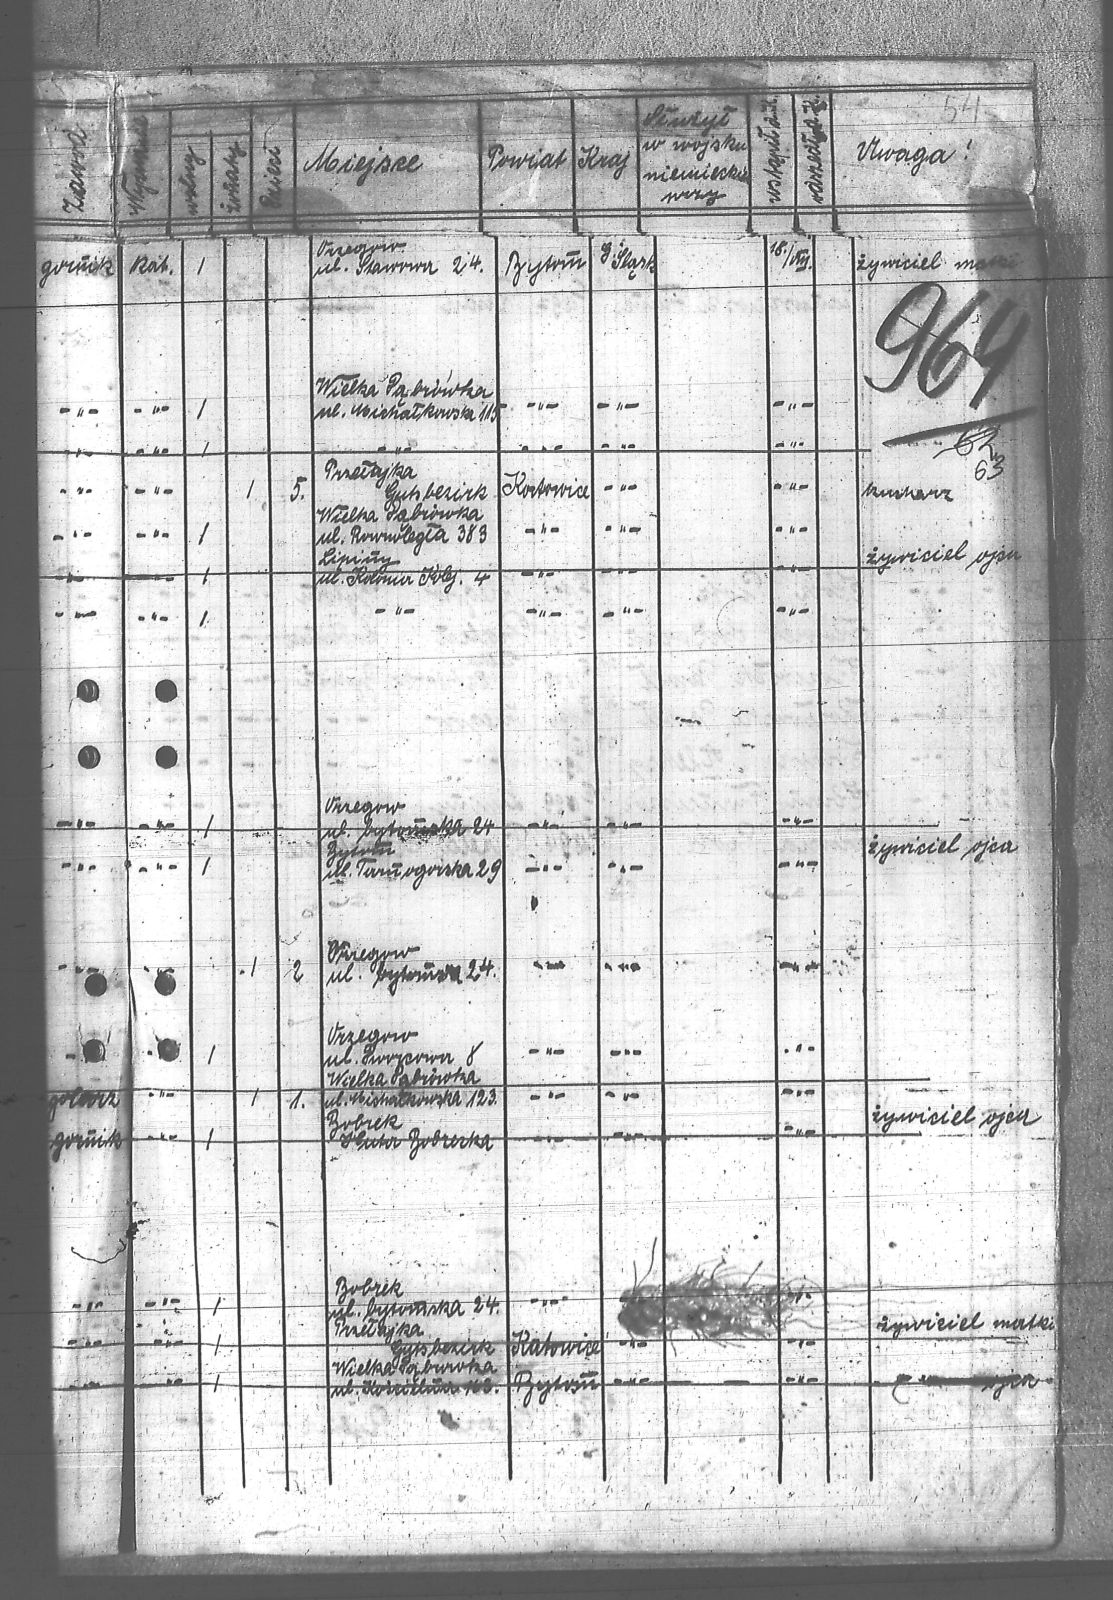 54
Zawód Wyznanie wolny żonaty Dzieci Miejsce Powiat Kraj Służył w wojsku niemieckim przy wstąpił d. K. odszedł z K. Uwaga!
górnik Kat. 1 Orzegow
ul. Stawowa 24. Bytom G Śląsk 18/VIII. żywiciel matki
964
Wielka Dąbrówka
-"- -"- 1 ul. Michałkowska 115 -"- -"- -"-
-"- -"- 1 -"- -"- -"- -"-
62
63
Przełajka
-"- -"- 1 5. Gutsbezirk Katowice -"- -"- kucharz
Wielka Dąbrówka
-"- -"- 1 ul. Rownoległa 383 -"- -"- -"-
Lipiny żywiciel ojca
-"- -"- 1 ul. Kolonia Kolej. 4 -"- -"- -"-
-"- -"- 1 -"- -"- -"- -"-
Orzegow
-"- -"- 1 ul. bytomska 24 -"- -"- -"-
Bytom żywiciel ojca
-"- -"- 1 ul. Tarnogorska 29 -"- -"- -"-
Orzegow
-"- -"- 1 2 ul. bytomska 24. -"- -"- -"-
Orzegow
-"- -"- 1 ul. Dworcowa 8 -"- -"- -"-
Wielka Dąbrówka
golarz -"- 1 1. ul. Michałkowska 123. -"- -"- -"-
Bobrek żywiciel ojca
górnik -"- 1 Huta Bobrerka -"- -"- -"-
Bobrek
-"- -"- 1 ul. bytomska 24. -"- -"-
Przełajka żywiciel matki
-"- -"- 1 Gutsbezirk Katowice -"- -"-
Wielka Dąbrówka
-"- -"- 1 ul. Bytom -"- -"- ojca